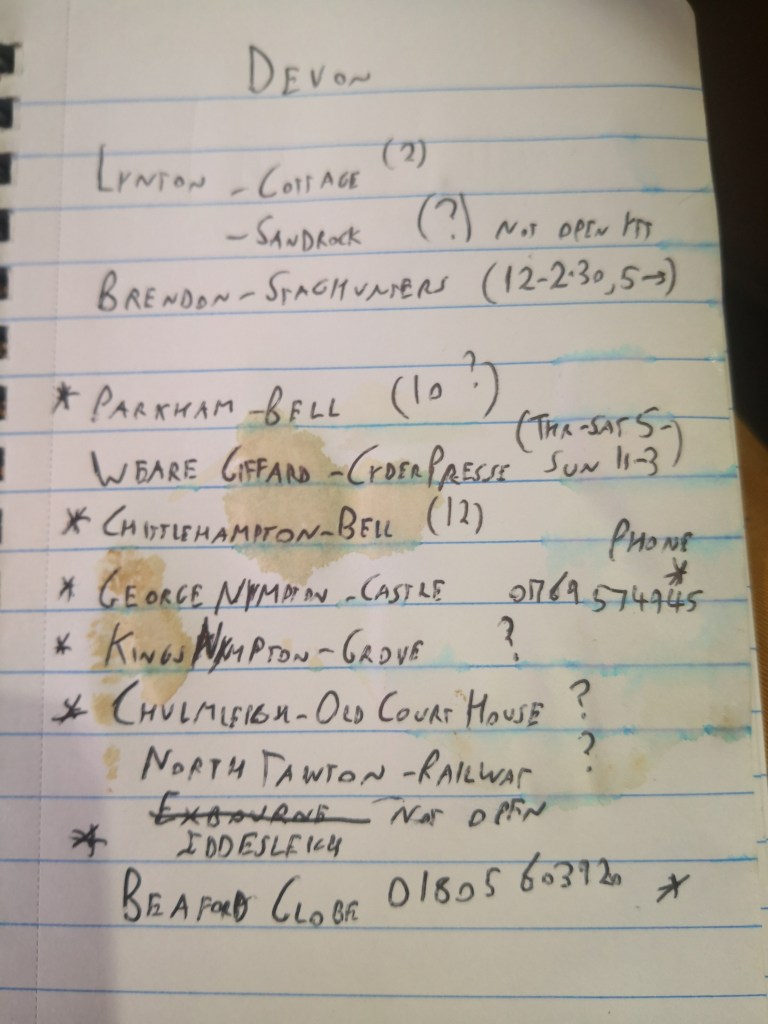 DEVON
LYNTON - COTTAGE (2)
- SANDROCK (?) NOT OPEN YET
BRENDON - STAGHUNTERS (12-2.30, 5→)
* PARKHAM - BELL (10?)
(THR-SAT 5-)
WEARE GIFFARD - CYDER PRESSE SUN 11-3)
* CHITTLEHAMPTON - BELL (12)
PHONE
*
* GEORGE NYMPTON - CASTLE 01769 574945
* KINGS NYMPTON - GROVE ?
* CHULMLEIGH - OLD COURT HOUSE ?
NORTH TAWTON - RAILWAY ?
EXBOURNE - NOT OPEN
* IDDESLEIGH
BEAFORD GLOBE 01805 603920 *